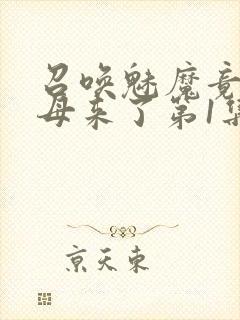 召唤魅魔竟
母来了第1集
京天东